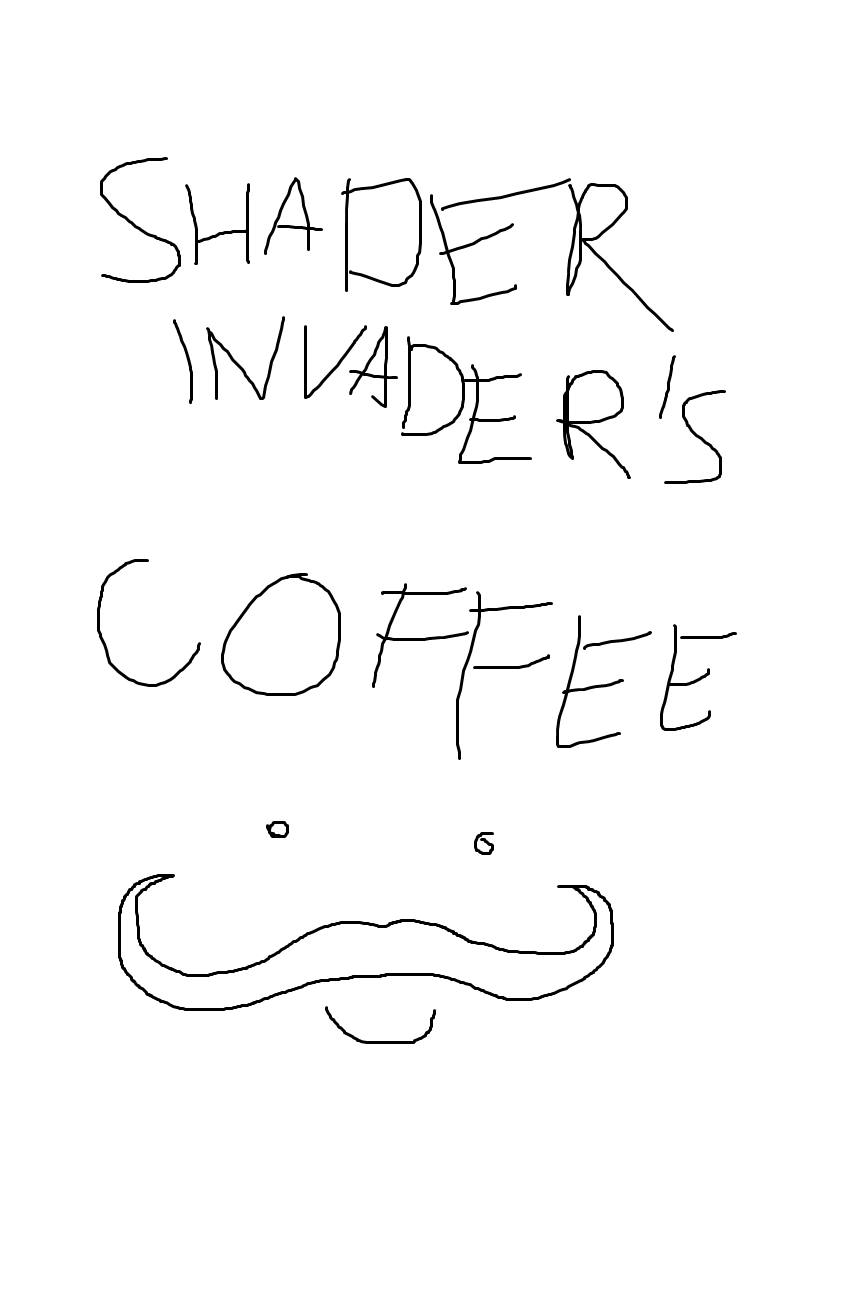 SHADER
INVADER'S
COFFEE